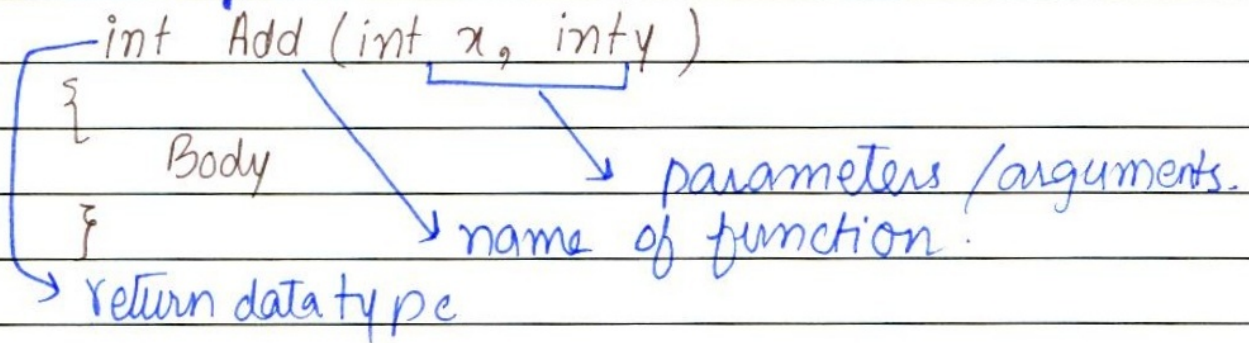 int Add (int x, int y)
{
Body
parameters /arguments.
}
name of function.
return data type